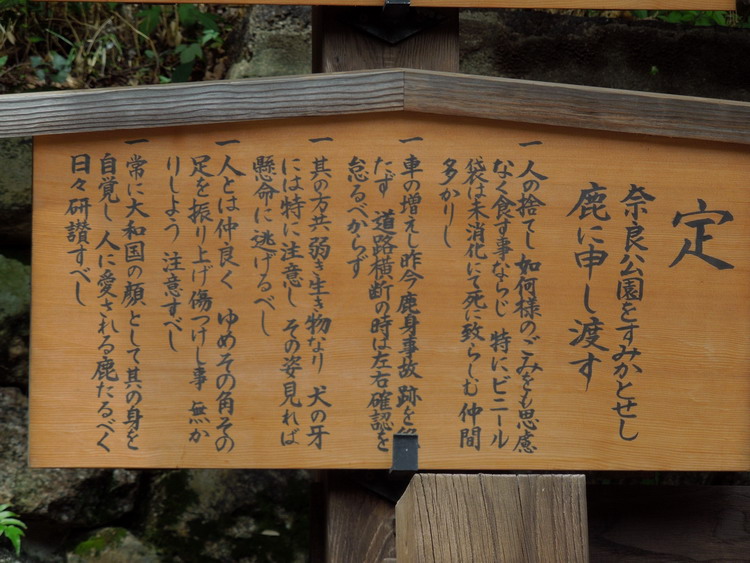 定
奈良公園をすみかとせし
鹿に申し渡す
一 人の捨てし 如何様のごみをも思慮
なく食す事ならじ 特にビニール
袋は未消化にて死に致らしむ 仲間
多かりし
一 車の増えし昨今 鹿身事故 跡を
たず 道路横断の時は左右確認を
怠るべからず
一 其の方共 弱き生き物なり 犬の牙
には特に注意し その姿見れば
懸命に逃げるべし
一 人とは仲良く ゆめその角その
足を振り上げ傷つけし事 無か
りしよう 注意すべし
一 常に大和国の顔として其の身を
自覚し 人に愛される鹿たるべく
日々研讃すべし